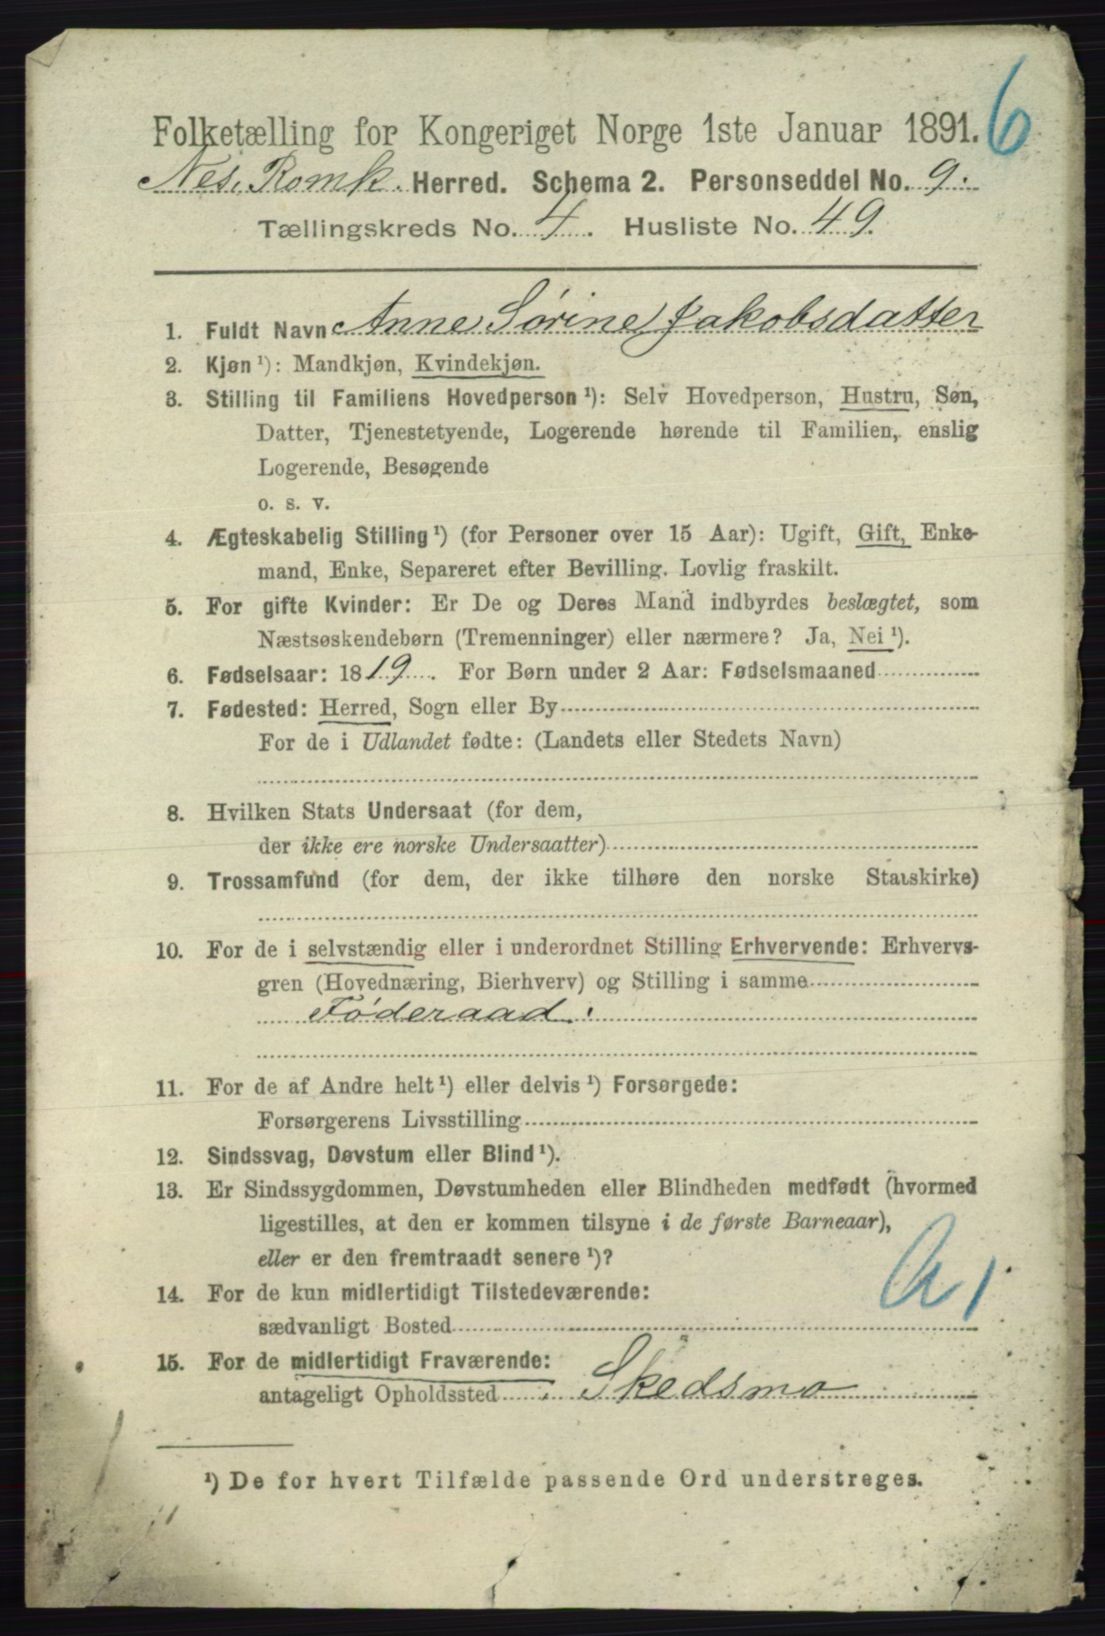 6
Folketælling for Kongeriget Norge 1ste Januar 1891.
Nes. Romk. Herred. Schema 2. Personseddel No. 9.
Tællingskreds No. 4. Husliste No. 49.
1. Fuldt Navn Anne Sørine Jakobsdatter
2. Kjøn ¹): Mandkjøn, Kvindekjøn.
3. Stilling til Familiens Hovedperson ¹): Selv Hovedperson, Hustru, Søn,
Datter, Tjenestetyende, Logerende hørende til Familien, enslig
Logerende, Besøgende
o. s. v.
4. Ægteskabelig Stilling ¹) (for Personer over 15 Aar): Ugift, Gift, Enke-
mand, Enke, Separeret efter Bevilling. Lovlig fraskilt.
5. For gifte Kvinder: Er De og Deres Mand indbyrdes beslægtet, som
Næstsøskendebørn (Tremenninger) eller nærmere? Ja, Nei ¹).
6. Fødselsaar: 1819. For Børn under 2 Aar: Fødselsmaaned
7. Fødested: Herred, Sogn eller By
For de i Udlandet fødte: (Landets eller Stedets Navn)
8. Hvilken Stats Undersaat (for dem,
der ikke ere norske Undersaatter)
9. Trossamfund (for dem, der ikke tilhøre den norske Statskirke)
10. For de i selvstændig eller i underordnet Stilling Erhvervende: Erhvervs-
gren (Hovednæring, Bierhverv) og Stilling i samme
Føderaad.
11. For de af Andre helt ¹) eller delvis ¹) Forsørgede:
Forsørgerens Livsstilling
12. Sindssvag, Døvstum eller Blind ¹).
13. Er Sindssygdommen, Døvstumheden eller Blindheden medfødt (hvormed
ligestilles, at den er kommen tilsyne i de første Barneaar),
eller er den fremtraadt senere ¹)?
14. For de kun midlertidigt Tilstedeværende:
sædvanligt Bosted
15. For de midlertidigt Fraværende:
antageligt Opholdssted Skedsmo
¹) De for hvert Tilfælde passende Ord understreges.